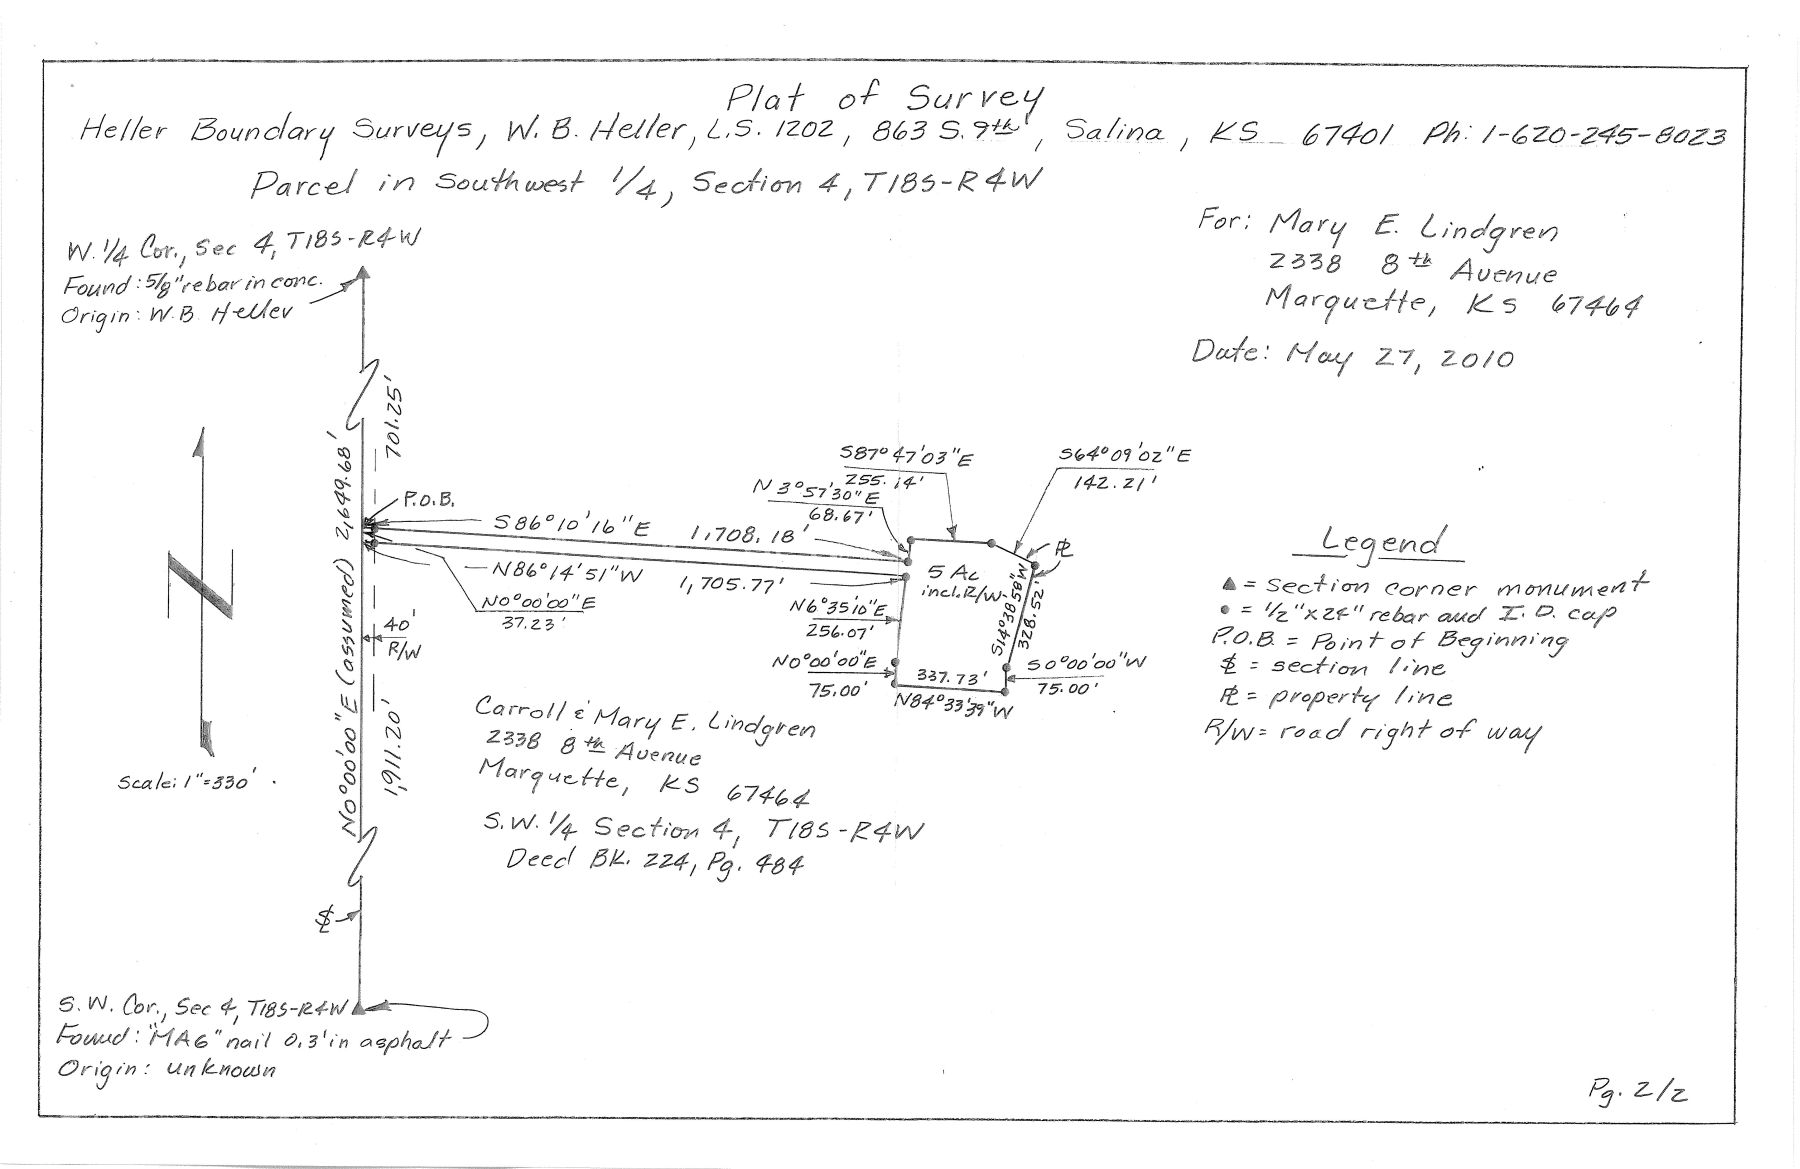 Plat of Survey
Heller Boundary Surveys, W. B. Heller, L.S. 1202, 863 S. 9th, Salina, KS 67401 Ph: 1-620-245-8023
Parcel in Southwest 1/4, Section 4, T18S-R4W
For: Mary E. Lindgren
2338 8th Avenue
Marquette, KS 67464
Date: May 27, 2010
W. 1/4 Cor., Sec 4, T18S-R4W
Found: 5/8" rebar in conc.
Origin: W.B. Heller
701.25'
N0°00'00"E (assumed) 2,649.68'
P.O.B.
S86°10'16"E 1,708.18'
N86°14'51"W 1,705.77'
N0°00'00"E
37.23'
40'
R/W
1,911.20'
S87°47'03"E
255.14'
N3°57'30"E
68.67'
S64°09'02"E
142.21'
PL
5 Ac
incl. R/W
S14°38'58"W
328.52'
N6°35'10"E
256.07'
N0°00'00"E
75.00'
337.73'
N84°33'39"W
S0°00'00"W
75.00'
Legend
▲ = section corner monument
● = 1/2"x24" rebar and I.D. cap
P.O.B. = Point of Beginning
SL = section line
PL = property line
R/W = road right of way
Scale: 1"=330'
Carroll & Mary E. Lindgren
2338 8th Avenue
Marquette, KS 67464
S.W. 1/4 Section 4, T18S-R4W
Deed BK. 224, Pg. 484
SL
S.W. Cor., Sec 4, T18S-R4W
Found: "MAG" nail 0.3' in asphalt
Origin: unknown
Pg. 2/2